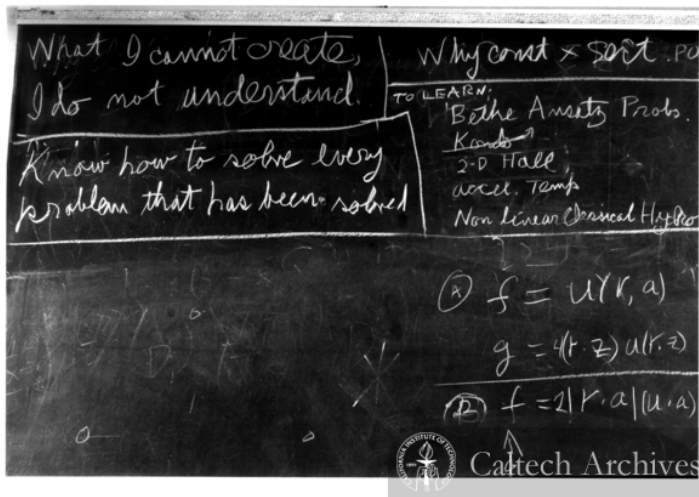 What I cannot create,
I do not understand.
Know how to solve every
problem that has been solved
Why const × sect. PO
TO LEARN:
Bethe Ansatz Probs.
Kondo
2-D Hall
accel. Temp
Non Linear Classical Hydro
(A) f = u(r, a)
g = 4(r·z) u(r, z)
(B) f = 2|r·a|(u·a)
Caltech Archives
CALIFORNIA INSTITUTE OF TECHNOLOGY